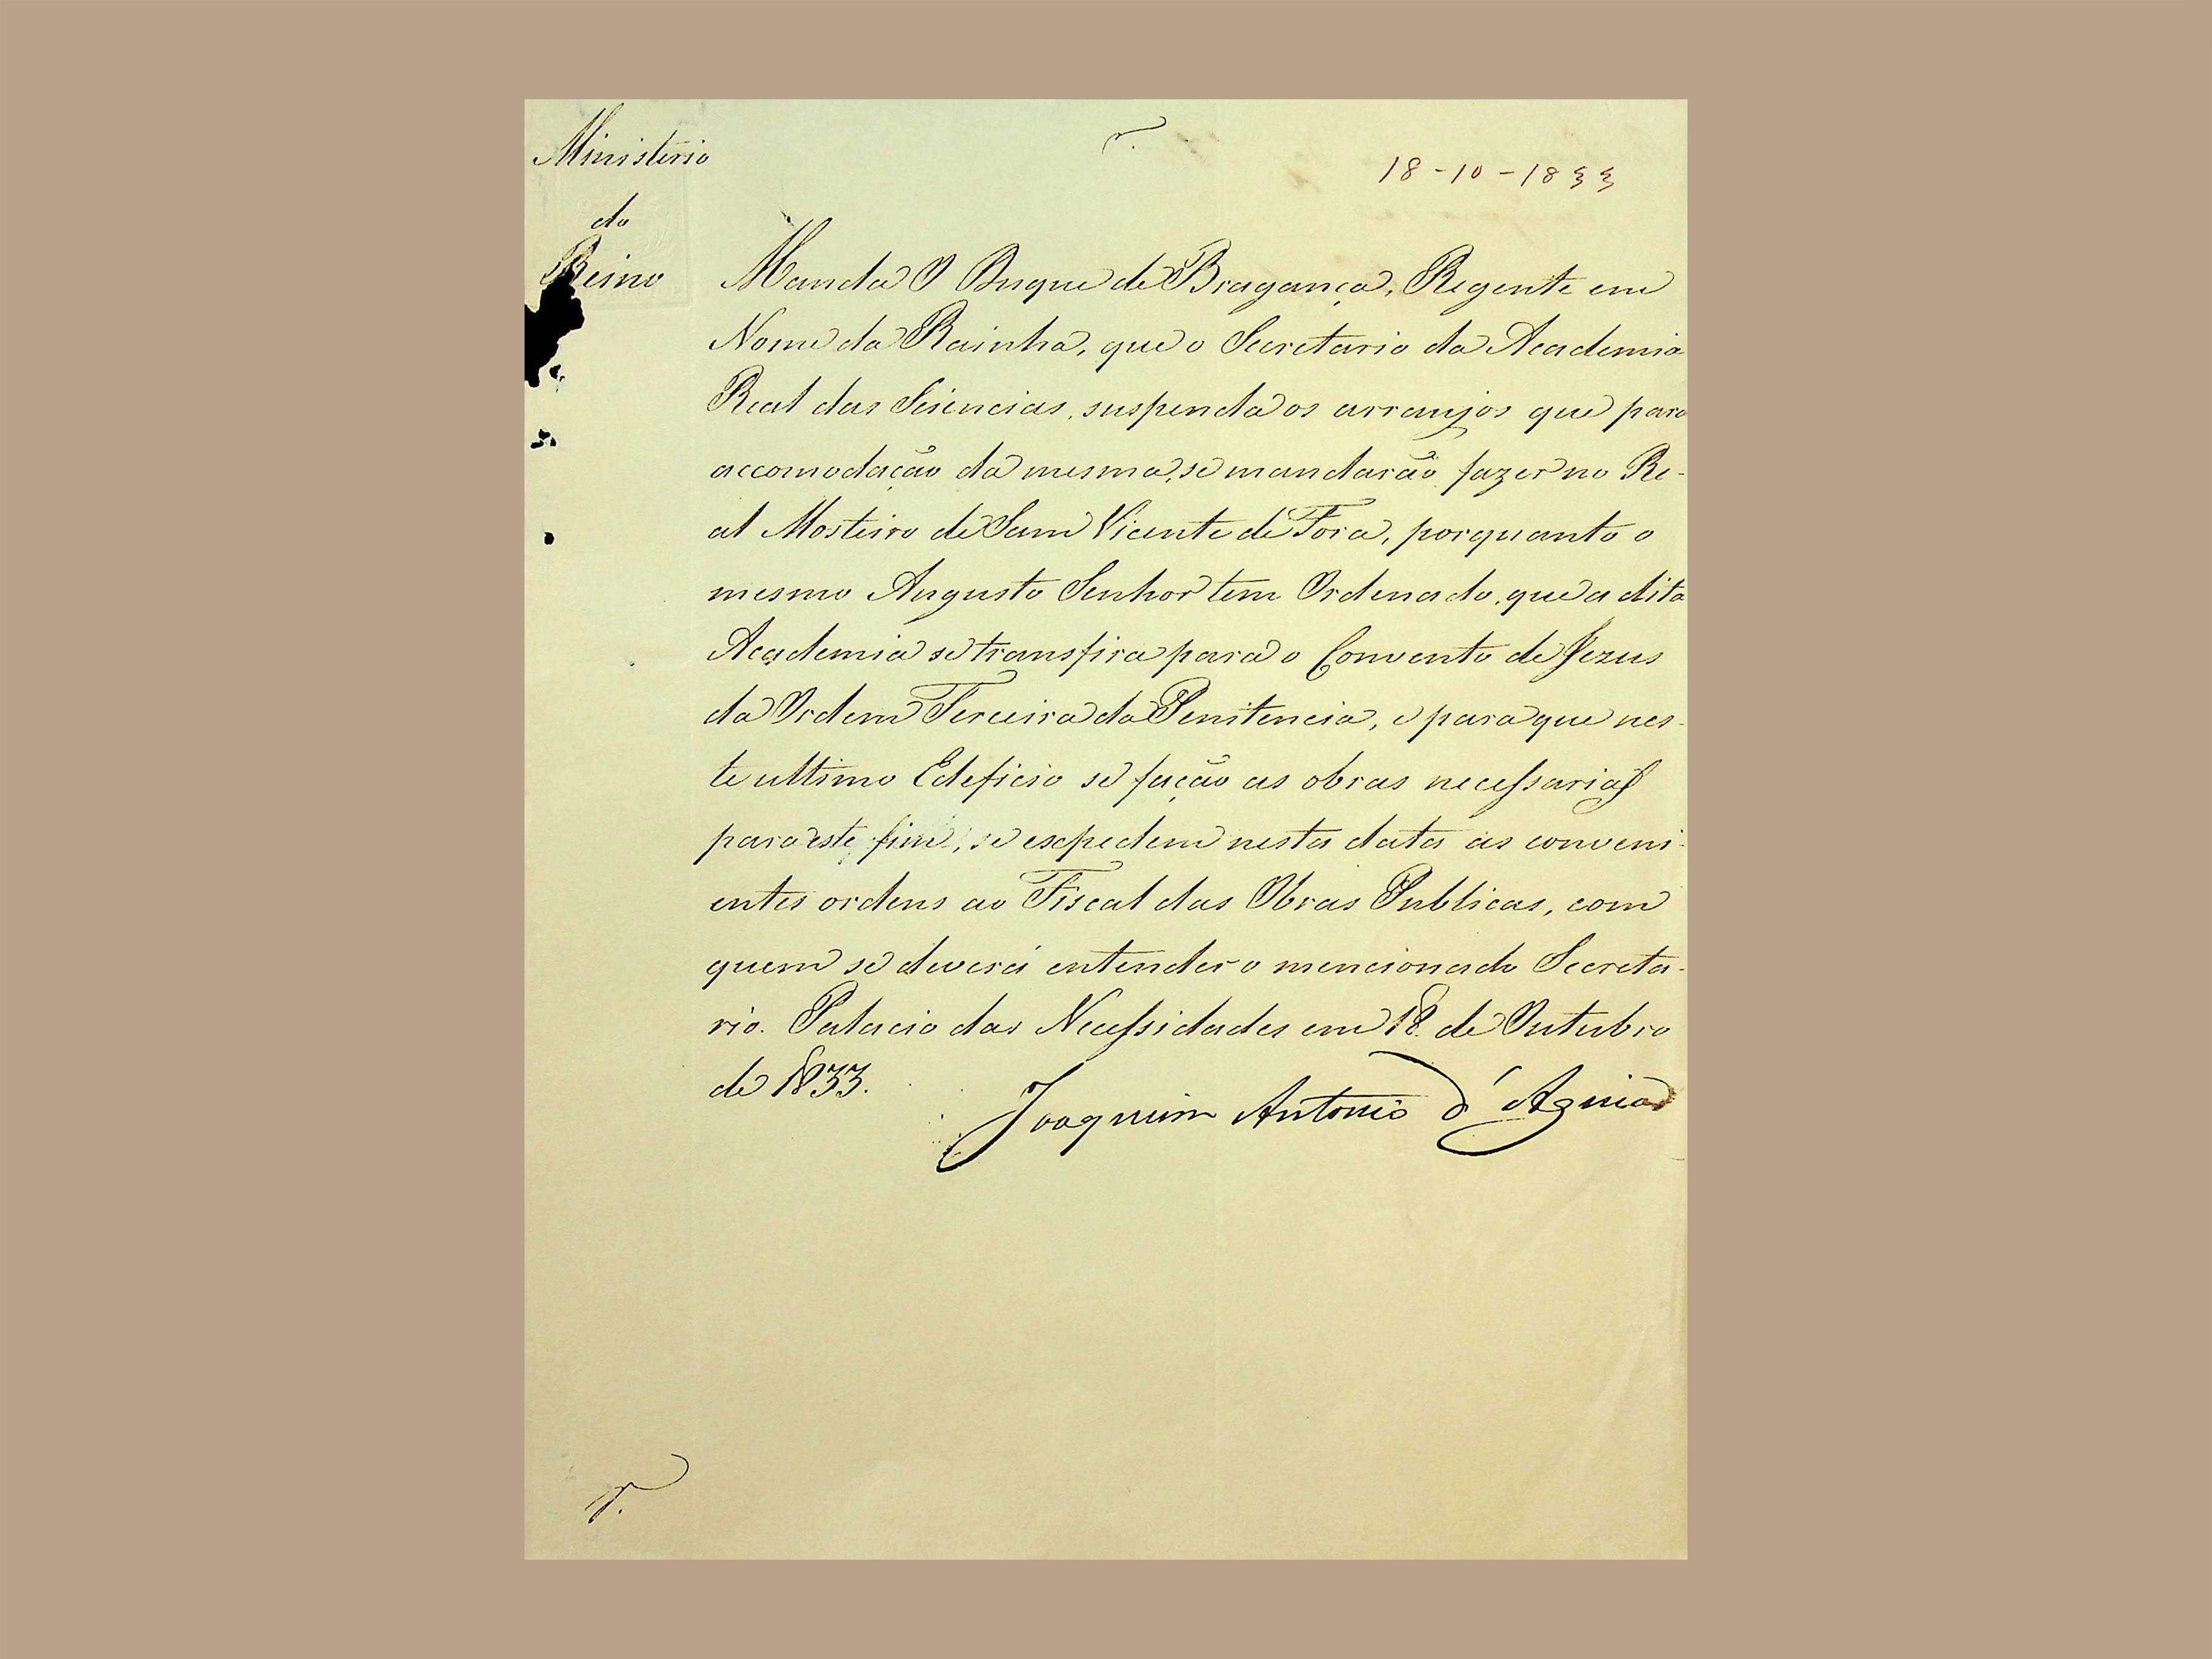 Ministério
do
Reino
18-10-1833
Manda O Duque de Bragança, Regente em
Nome da Rainha, que o Secretario da Academia
Real das Sciencias, suspenda os arranjos que para
accomodação da mesma, se mandarão fazer no Re-
al Mosteiro de Sam Vicente de Fora, porquanto o
mesmo Augusto Senhor tem Ordenado, que a dita
Academia se transfira para o Convento de Jezus
da Ordem Terceira da Penitencia, e para que nes-
te ultimo Edeficio se fação as obras necessarias
para este fim, se expedem nesta data as conveni-
entes ordens ao Fiscal das Obras Publicas, com
quem se deverá entender o mencionado Secreta-
rio. Palacio das Necessidades em 18 de Outubro
de 1833.
Joaquim Antonio d'Aguiar